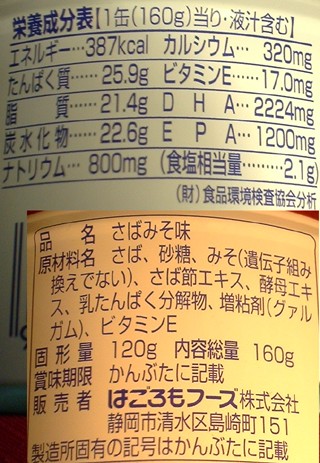 栄養成分表【1缶(160g)当り・液汁含む】
エネルギー…387kcal カルシウム… 320mg
たんぱく質…… 25.9g ビタミンE…… 17.0mg
脂 質…… 21.4g D H A… 2224mg
炭水化物…… 22.6g E P A… 1200mg
ナトリウム… 800mg (食塩相当量……2.1g)
(財)食品環境検査協会分析
品 名 さばみそ味
原材料名 さば、砂糖、みそ(遺伝子組み
換えでない)、さば節エキス、酵母エキ
ス、乳たんぱく分解物、増粘剤(グァル
ガム)、ビタミンE
固形量 120g 内容総量 160g
賞味期限 かんぶたに記載
販売者 はごろもフーズ株式会社
静岡市清水区島崎町151
製造所固有の記号はかんぶたに記載